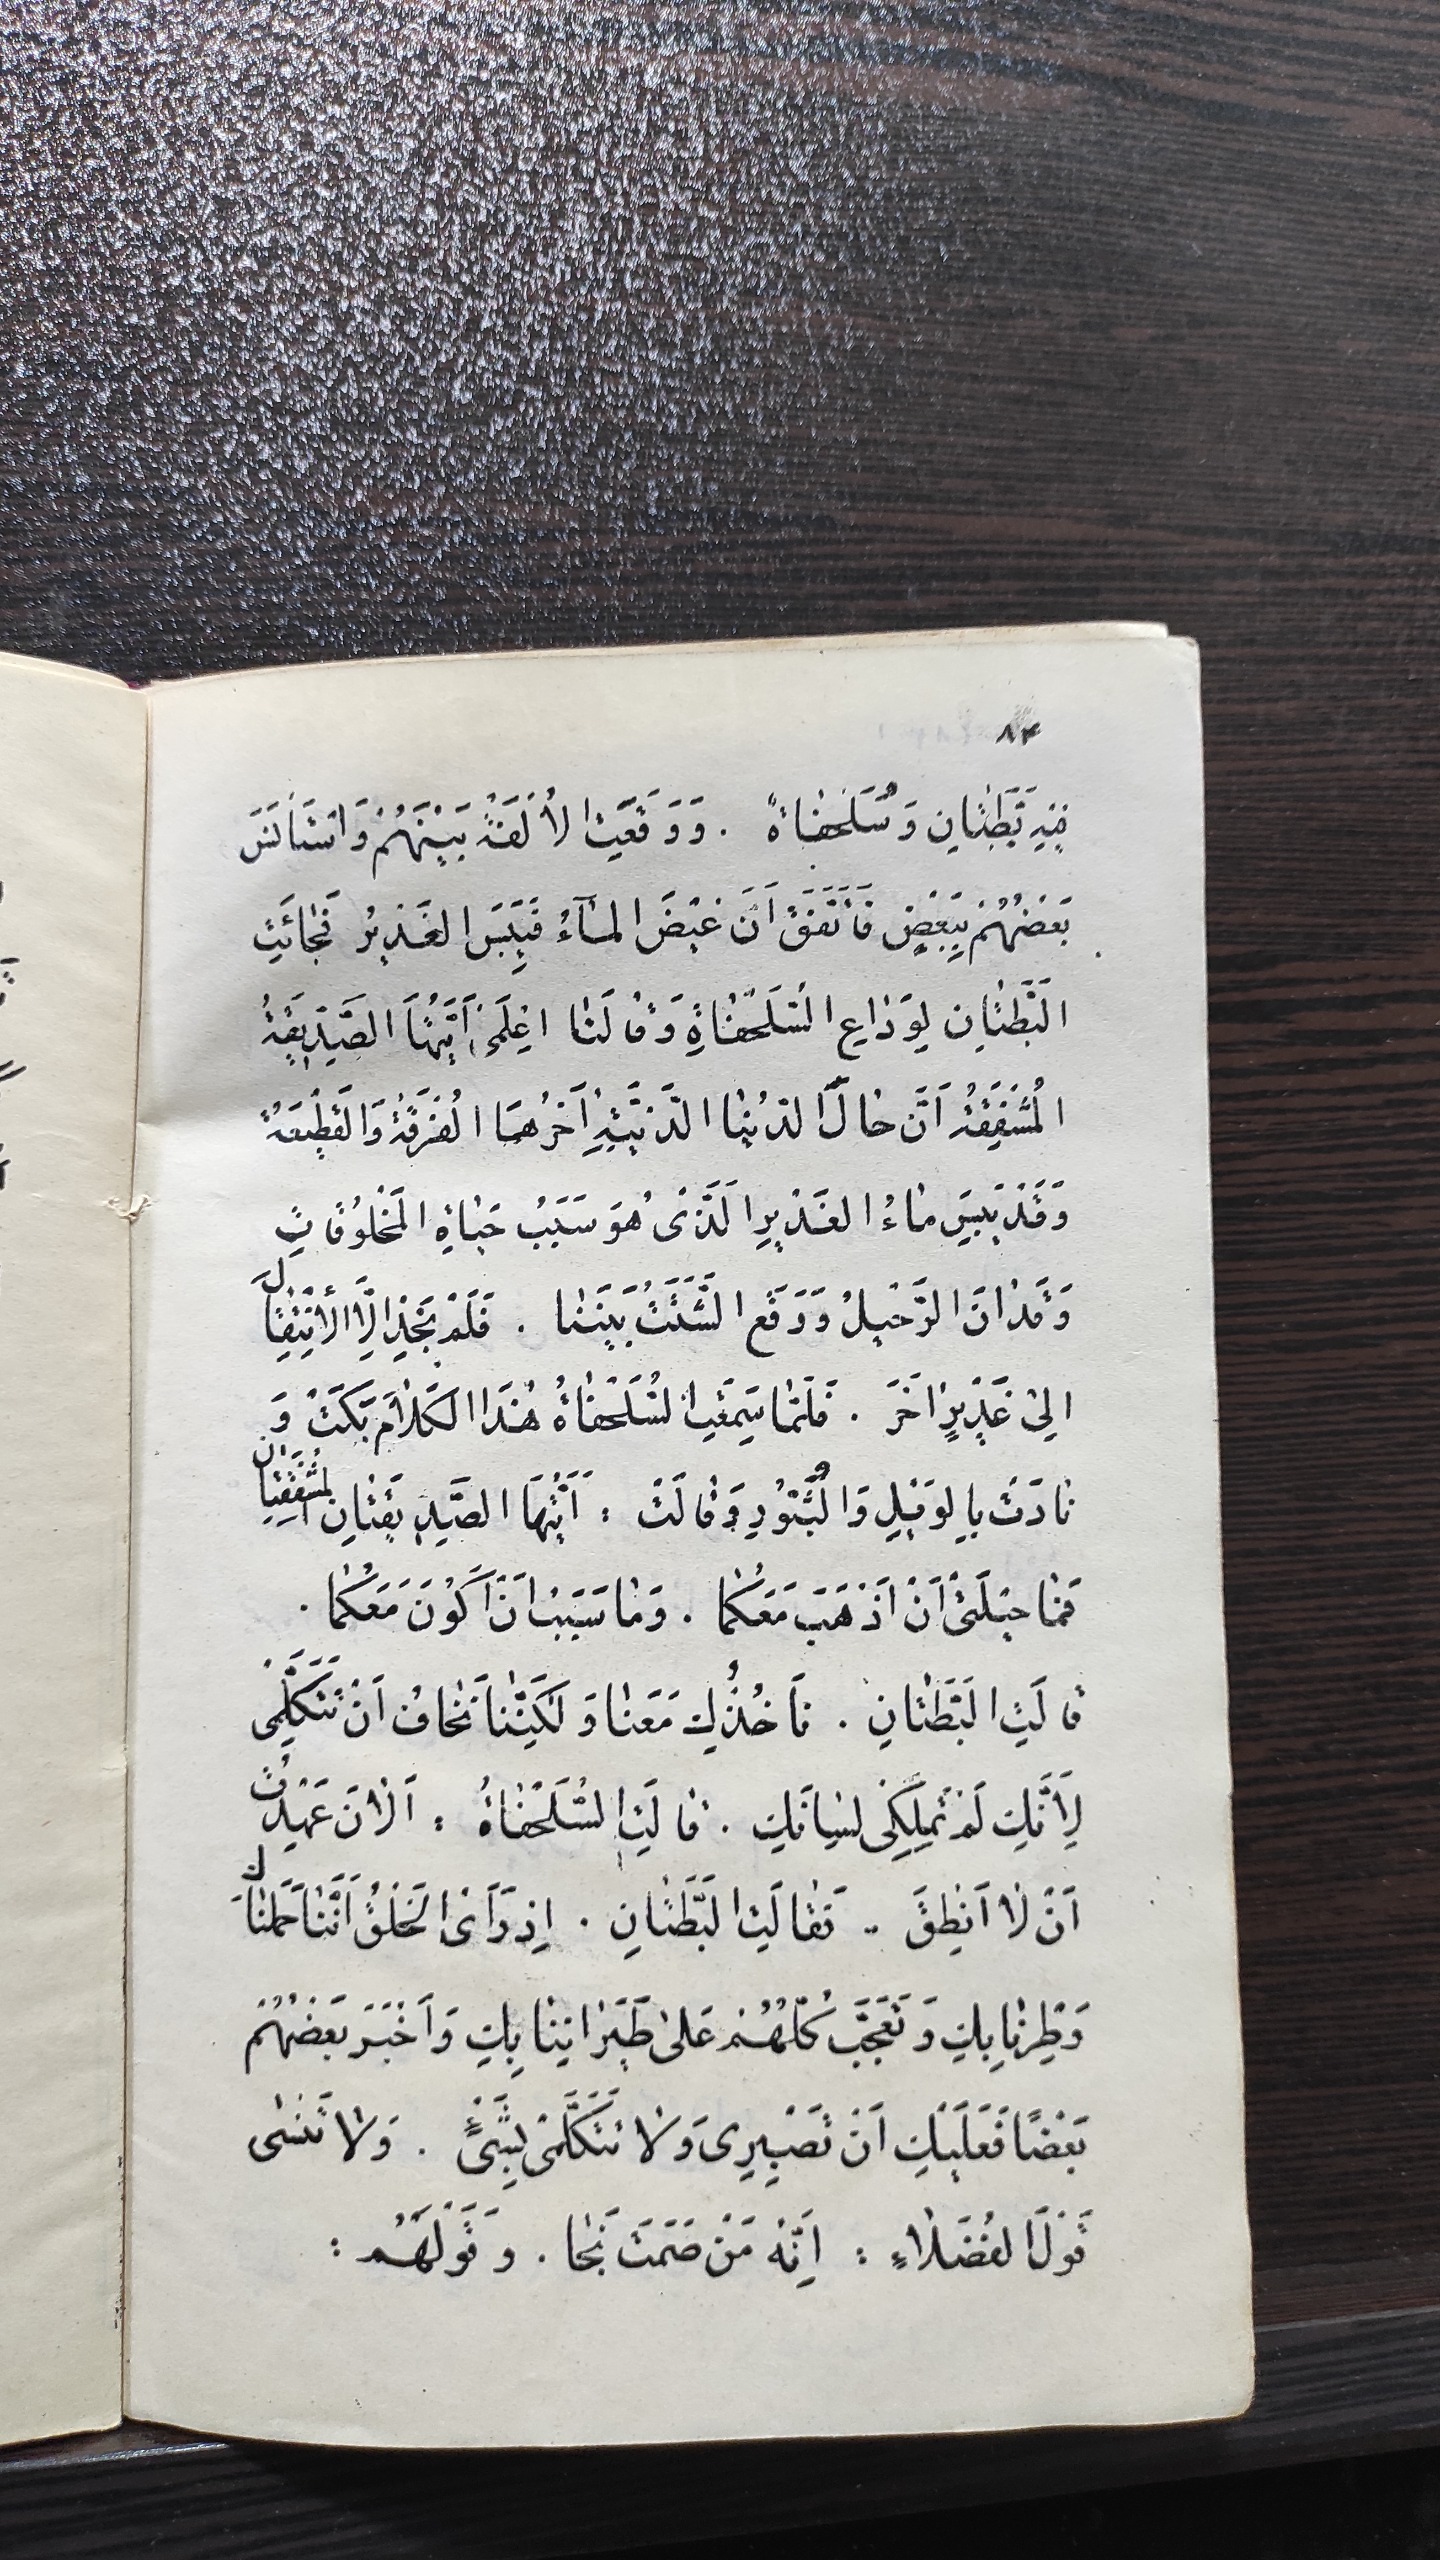 ٨٣
فِيْهِ بَطَّتَانِ وَسُلَحْفَاةٌ . وَوَقَعَتِ الْاُلْفَةُ بَيْنَهُمْ وَاسْتَأْنَسَ
بَعْضُهُمْ بِبَعْضٍ فَاتَّفَقَ اَنَ غِيْضَ الْمَآءُ فَيَبِسَ الْغَدِيْرُ فَجَائَتِ
الْبَطَّتَانِ لِوَدَاعِ السُّلَحْفَاةِ وَقَالَتَا اعْلَمِيْ اَيَّتُهَا الصَّدِيْقَةُ
الْمُشْفِقَةُ اَنَّ حَالَ الدُّنْيَا الدَّنِيَّةِ اٰخِرُهَا الْفُرْقَةُ وَالْقَطِيْعَةُ
وَقَدْ يَبِسَ مَاءُ الْغَدِيْرِ الَّذِىْ هُوَ سَبَبُ حَيَاةِ الْمَخْلُوْقَاتِ
وَقَدْ اٰنَ الرَّحِيْلُ وَوَقَعَ الشَّتَتُ بَيْنَنَا . فَلَمْ نَجِدْ اِلَّا الْاِنْتِقَالَ
اِلىٰ غَدِيْرٍ اٰخَرَ . فَلَمَّا سَمِعَتِ السُّلَحْفَاةُ هٰذَا الْكَلَامَ بَكَتْ وَ
نَادَتْ بِالْوَيْلِ وَالثُّبُوْرِ وَقَالَتْ : اَيَّتُهَا الصَّدِيْقَتَانِ الْمُشْفِقَتَانِ
فَمَا حِيْلَتِىْ اَنْ اَذْهَبَ مَعَكُمَا . وَمَا سَبَبُ اَنْ اَكُوْنَ مَعَكُمَا .
قَالَتِ الْبَطَّتَانِ . نَاْخُذُكِ مَعَنَا وَلٰكِنَّنَا نَخَافُ اَنْ تَتَكَلَّمِىْ
لِاَنَّكِ لَمْ تَمْلِكِىْ لِسَانَكِ . قَالَتِ السُّلَحْفَاةُ : اَلْاٰنَ عَهِدْتُ
اَنْ لَا اَنْطِقَ .. فَقَالَتِ الْبَطَّتَانِ . اِذَا رَاَى الْخَلْقُ اَنَّنَا حَمَلْنَاكِ
وَطِرْنَا بِكِ وَ تَعَجَّبَ كُلُّهُمْ عَلىٰ طَيَرَانِنَا بِكِ وَاَخْبَرَ بَعْضُهُمْ
بَعْضًا فَعَلَيْكِ اَنْ تَصْبِرِى وَلَا تَتَكَلَّمِىْ بِشَيْءٍ . وَلَا تَنْسٰى
قَوْلَ الْفُضَلَاءِ : اِنَّهُ مَنْ صَمَتَ نَجَا . وَ قَوْلَهُمْ :